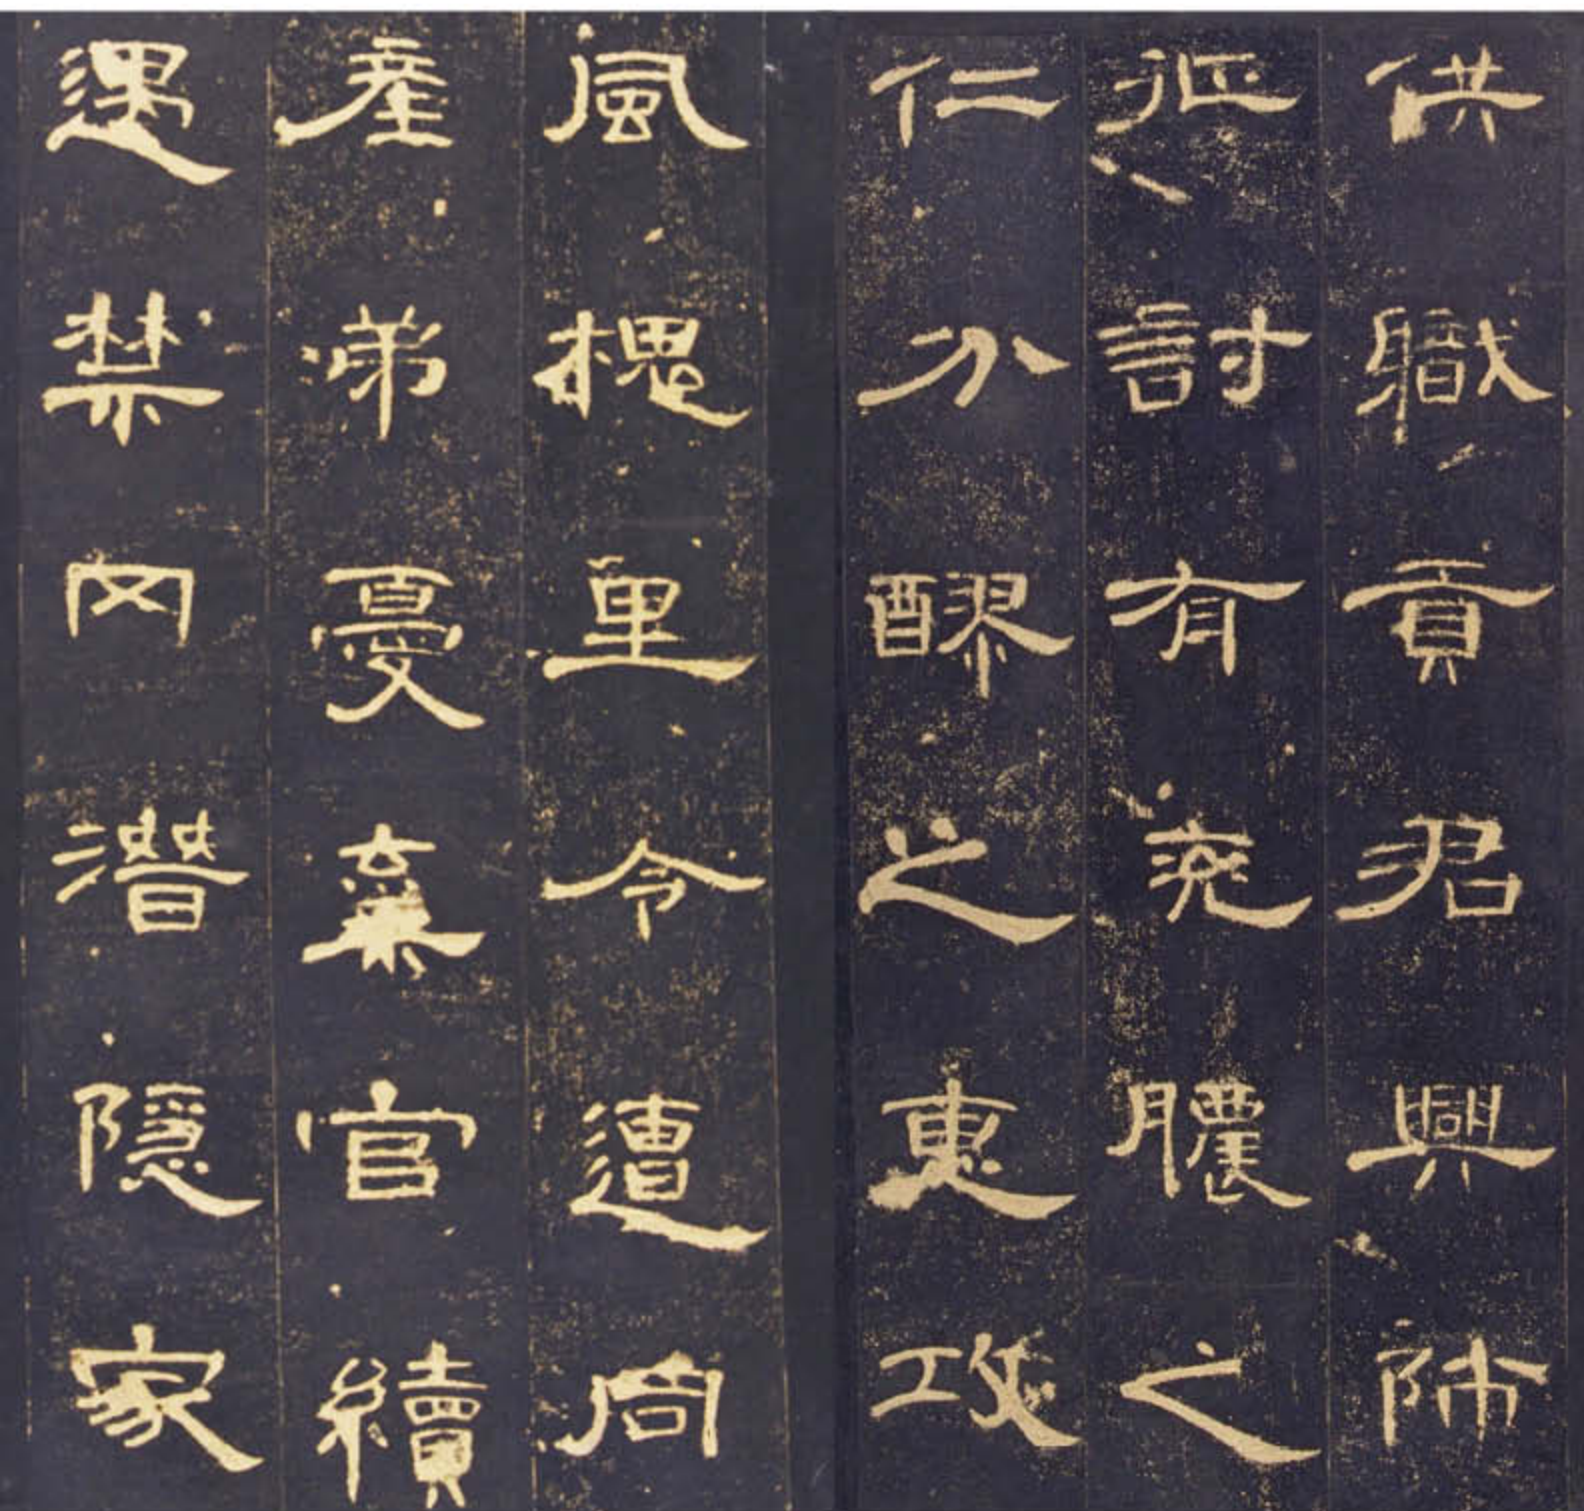 供職貢君興師
征討有兖膿之
仁分醪之惠攻
風槐里令遭同
產弟憂棄官續
遇禁网潛隱家